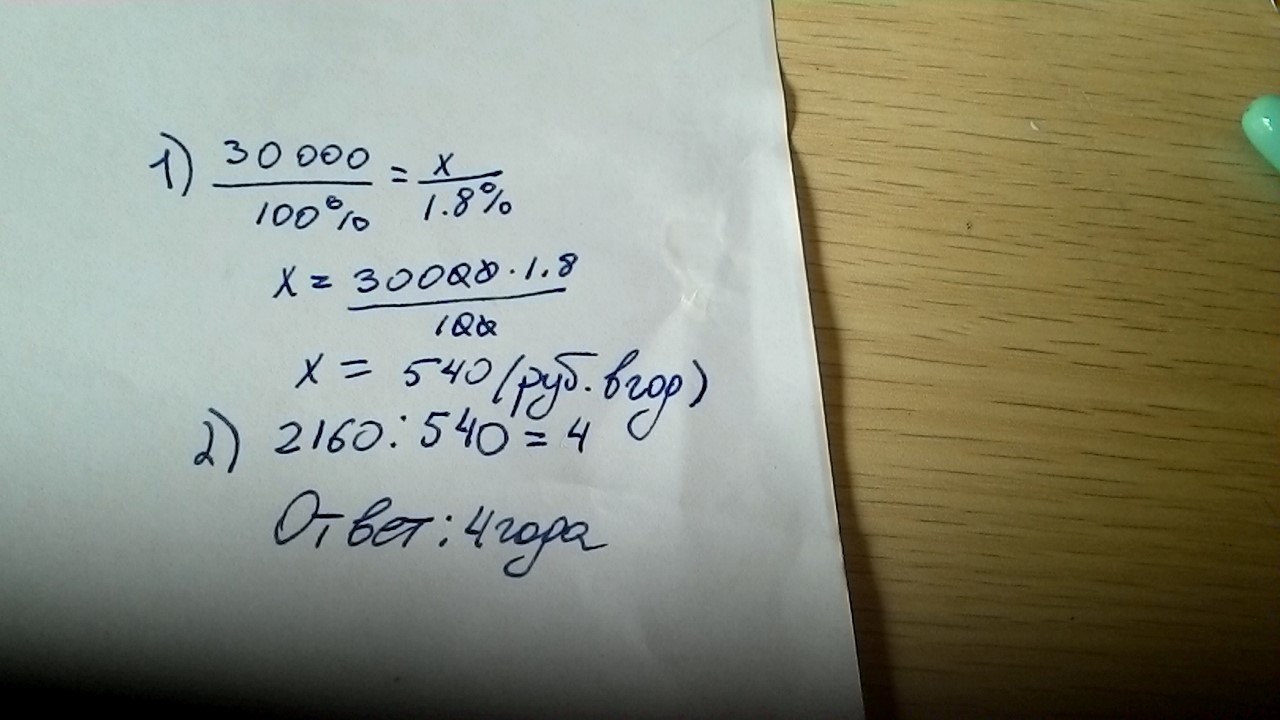 1) 30 000 / 100% = x / 1.8%
x = 30000 · 1.8 / 100
x = 540 (руб. в год)
2) 2160 : 540 = 4
Ответ: 4 года